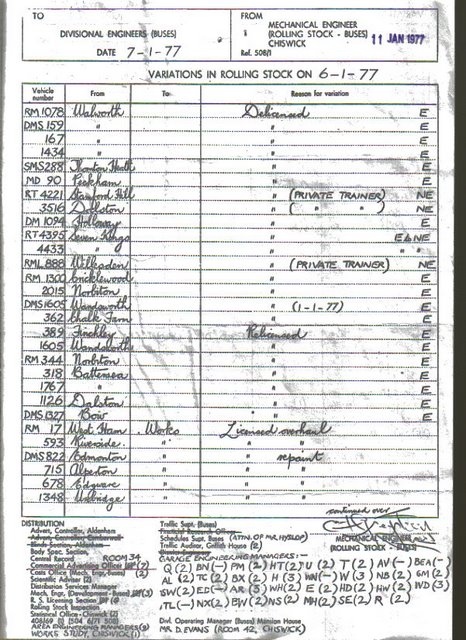 TO
DIVISIONAL ENGINEERS (BUSES)
DATE 7-1-77
FROM
MECHANICAL ENGINEER
(ROLLING STOCK - BUSES)
CHISWICK
Ref. 508/1
11 JAN 1977
VARIATIONS IN ROLLING STOCK ON 6-1-77
Vehicle number From To Reason for variation
RM 1078 Walworth Delicensed E
DMS 159 " " E
167 " " E
1434 " " E
SMS 288 Thornton Heath " E
MD 90 Peckham " E
RT 4221 Stamford Hill " (PRIVATE TRAINER) NE
3516 Dalston " ( " " ) NE
DM 1094 Holloway " E
RT 4395 Seven Kings " E & NE
4433 " " " "
RML 888 Willesden " (PRIVATE TRAINER) NE
RM 1300 Cricklewood " E
2015 Norbiton " E
DMS 1605 Wandsworth " (1-1-77) E
362 Chalk Farm " E
389 Finchley Relicensed E
1605 Wandsworth " E
RM 344 Norbiton " E
318 Battersea " E
1767 " " E
1126 Dalston " E
DMS 1327 Bow " E
RM 17 West Ham Works Licensed overhaul
593 Riverside " " "
DMS 822 Edmonton " " repaint
715 Alperton " " "
678 Edgware " " "
1348 Uxbridge " " "
continued over
MECHANICAL ENGINEER
(ROLLING STOCK - BUSES)
DISTRIBUTION
Advers, Controller, Aldenham
Advers, Controller, Camberwell
Body Spec. Section,
Central Record ROOM 34
Commercial Advertising Officer (7)
Costs Office (Mech. Eng. Buses) (2)
Scientific Adviser (2)
Distribution Services Manager
Mech. Engr. (Development - Buses)
R. S. Licensing Section
Rolling Stock Inspection
Statistical Office - Chiswick (2)
AREA ENGINEERING MANAGERS (2)
WORKS STUDY, CHISWICK (1)
Traffic Supt. (Buses)
Schedules Supt. (Buses) (ATTN. OF MR. HYSLOP)
Traffic Auditor, Golfish House (2)
GARAGE ENGINEERING MANAGERS:-
Q (2) BN (-) PM (2) HT (2) U (2) T (2) AV (-) BEA (-)
AL (2) TC (2) BX (2) H (3) WN (-) W (3) NB (2) GM (2)
SW (2) ED (-) AR (3) WH (2) E (2) HD (2) HW (2) WD (3)
TL (-) NX (2) BW (2) NS (2) MH (2) SE (2) R (2)
Divl. Operating Manager (Buses) Mansion House
MR. D. EVANS (ROOM 42, CHISWICK)